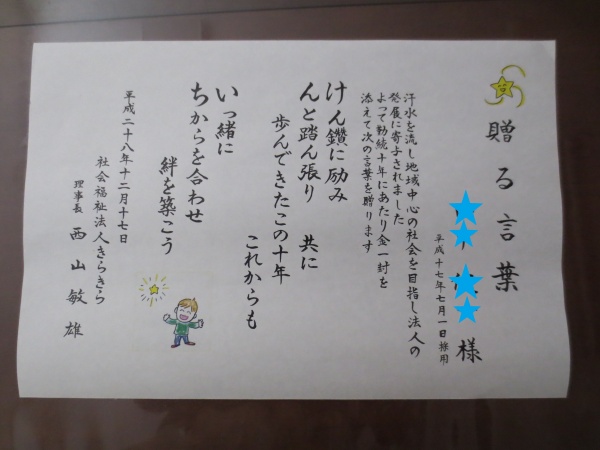 贈る言葉
様
平成十七年七月一日採用
汗水を流し地域中心の社会を目指し法人の
発展に寄与されました
よって勤続十年にあたり金一封を
添えて次の言葉を贈ります
けん鑽に励み
んと踏ん張り 共に
歩んできたこの十年
これからも
いっ緒に
ちからを合わせ
絆を築こう
平成二十八年十二月十七日
社会福祉法人きらきら
理事長 西山敏雄